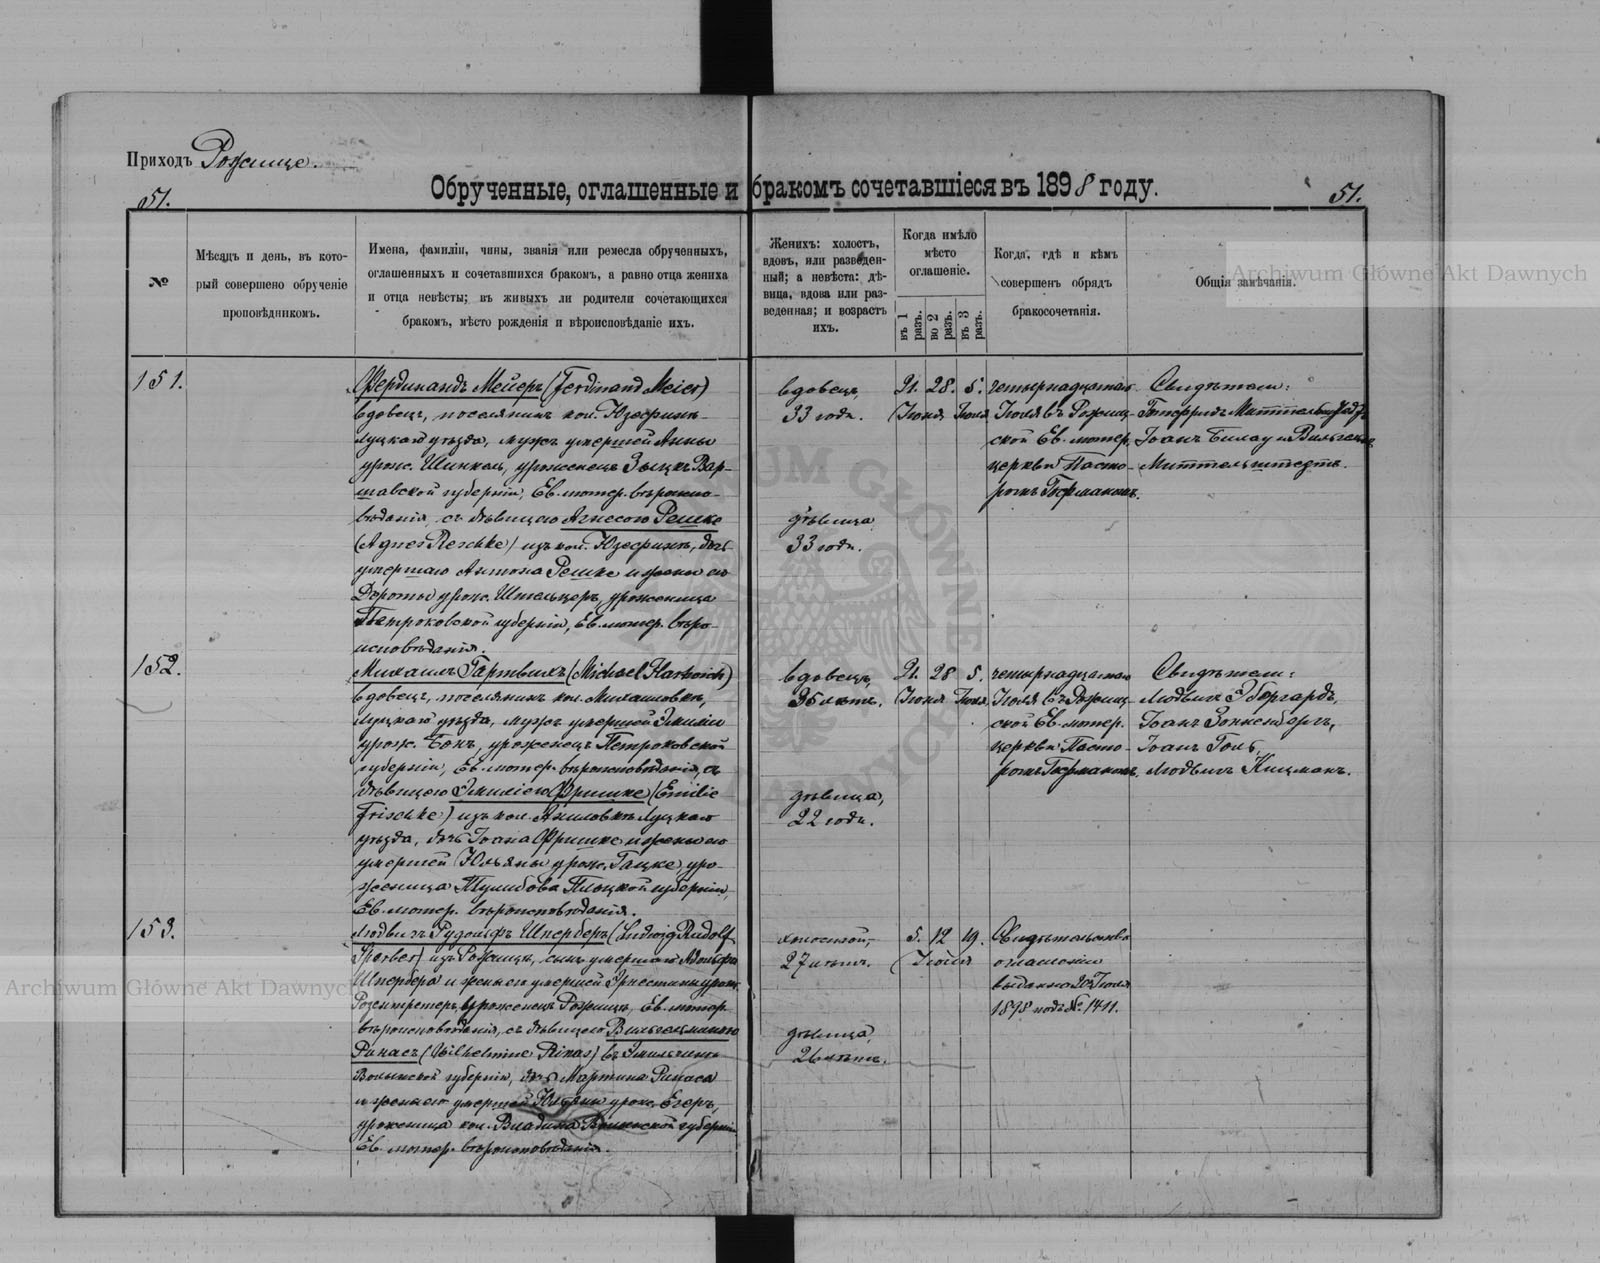 Приходъ Рожище.
Обрученные, оглашенные и бракомъ сочетавшіеся въ 1898 году.
51.
51.
№
Мѣсяцъ и день, въ кото-
рый совершено обрученіе
проповѣдникомъ.
Имена, фамиліи, чины, званія или ремесла обрученныхъ,
оглашенныхъ и сочетавшихся бракомъ, а равно отца жениха
и отца невѣсты; въ живыхъ ли родители сочетающихся
бракомъ, мѣсто рожденія и вѣроисповѣданіе ихъ.
Женихъ: холостъ,
вдовъ, или разведен-
ный; а невѣста: дѣ-
вица, вдова или раз-
веденная; и возрастъ
ихъ.
Когда имѣло
мѣсто
оглашеніе.
въ 1 разъ.
во 2 разъ.
въ 3 разъ.
Когда, гдѣ и кѣмъ
совершенъ обрядъ
бракосочетанія.
Общія замѣчанія.
151.
Фердинандъ Мейеръ (Ferdinand Meier)
вдовецъ, поселянинъ кол. Юзефинъ
Луцкаго уѣзда, мужъ умершей Анны
урож. Шинкель, уроженецъ Вар-
шавской губерніи, Ев. лютер. вѣроиспо-
вѣданія, съ дѣвицею Агнесою Решке
(Agnes Reschke) изъ кол. Юзефинъ, дочь
умершаго Антона Решке и жены его
Дороты урож. Штельцеръ, уроженица
Петроковской губерніи, Ев. лютер. вѣро-
исповѣданія.
вдовецъ,
33 года.
дѣвица
33 года.
21. 28. 5.
Іюня Іюля
четырнадцатаго
Іюля въ Рожищ-
ской Ев. лютер.
церкви Пасто-
ромъ Германомъ.
Свидѣтели:
Готфридъ
Іоанъ Билау и Вильгельмъ
Миттельштедтъ.
152.
Михаилъ Гартвихъ (Michael Hartwich)
вдовецъ, поселянинъ кол. Михаиловка,
Луцкаго уѣзда, мужъ умершей Эмиліи
урож. Бонъ, уроженецъ Петроковской
губерніи, Ев. лютер. вѣроисповѣданія, съ
дѣвицею Эмиліею Фришке (Emilie
Frischke) изъ кол. Луцкаго
уѣзда, дочь Іоана Фришке и жены его
умершей Юльяны урож. Гацке, уро-
женица Плоцкой губерніи,
Ев. лютер. вѣроисповѣданія.
вдовецъ,
35 лѣтъ.
дѣвица,
22 года.
21. 28 5.
Іюня Іюля
четырнадцатаго
Іюля въ Рожищ-
ской Ев. лютер.
церкви Пасто-
ромъ Германомъ.
Свидѣтели:
Людвигъ Эбергардъ,
Іоанъ Зонненбергъ,
Іоанъ Голь,
Людвигъ Кицманъ.
153.
Людвигъ Рудольфъ Шперберъ (Ludwig Rudolf
Sperber) изъ Рожищъ, сынъ умершаго Адольфа
Шпербера и жены его умершей Эрнестины урож.
Розентретеръ, уроженецъ Рожищъ, Ев. лютер.
вѣроисповѣданія, съ дѣвицею Вильгельминою
Ринасъ (Wilhelmine Rinas) въ
Волынской губерніи, дочь Мартина Ринаса
и жены его умершей Юліяны урож. Егеръ,
уроженица кол. Владина Волынской губерніи
Ев. лютер. вѣроисповѣданія.
холостой,
27 лѣтъ.
дѣвица,
26 лѣтъ.
5. 12 19.
Іюля
Свидѣтельство
оглашеніи
выдано 20 Іюля
1898 подъ № 1411.
Archiwum Główne Akt Dawnych
Archiwum Główne Akt Dawnych